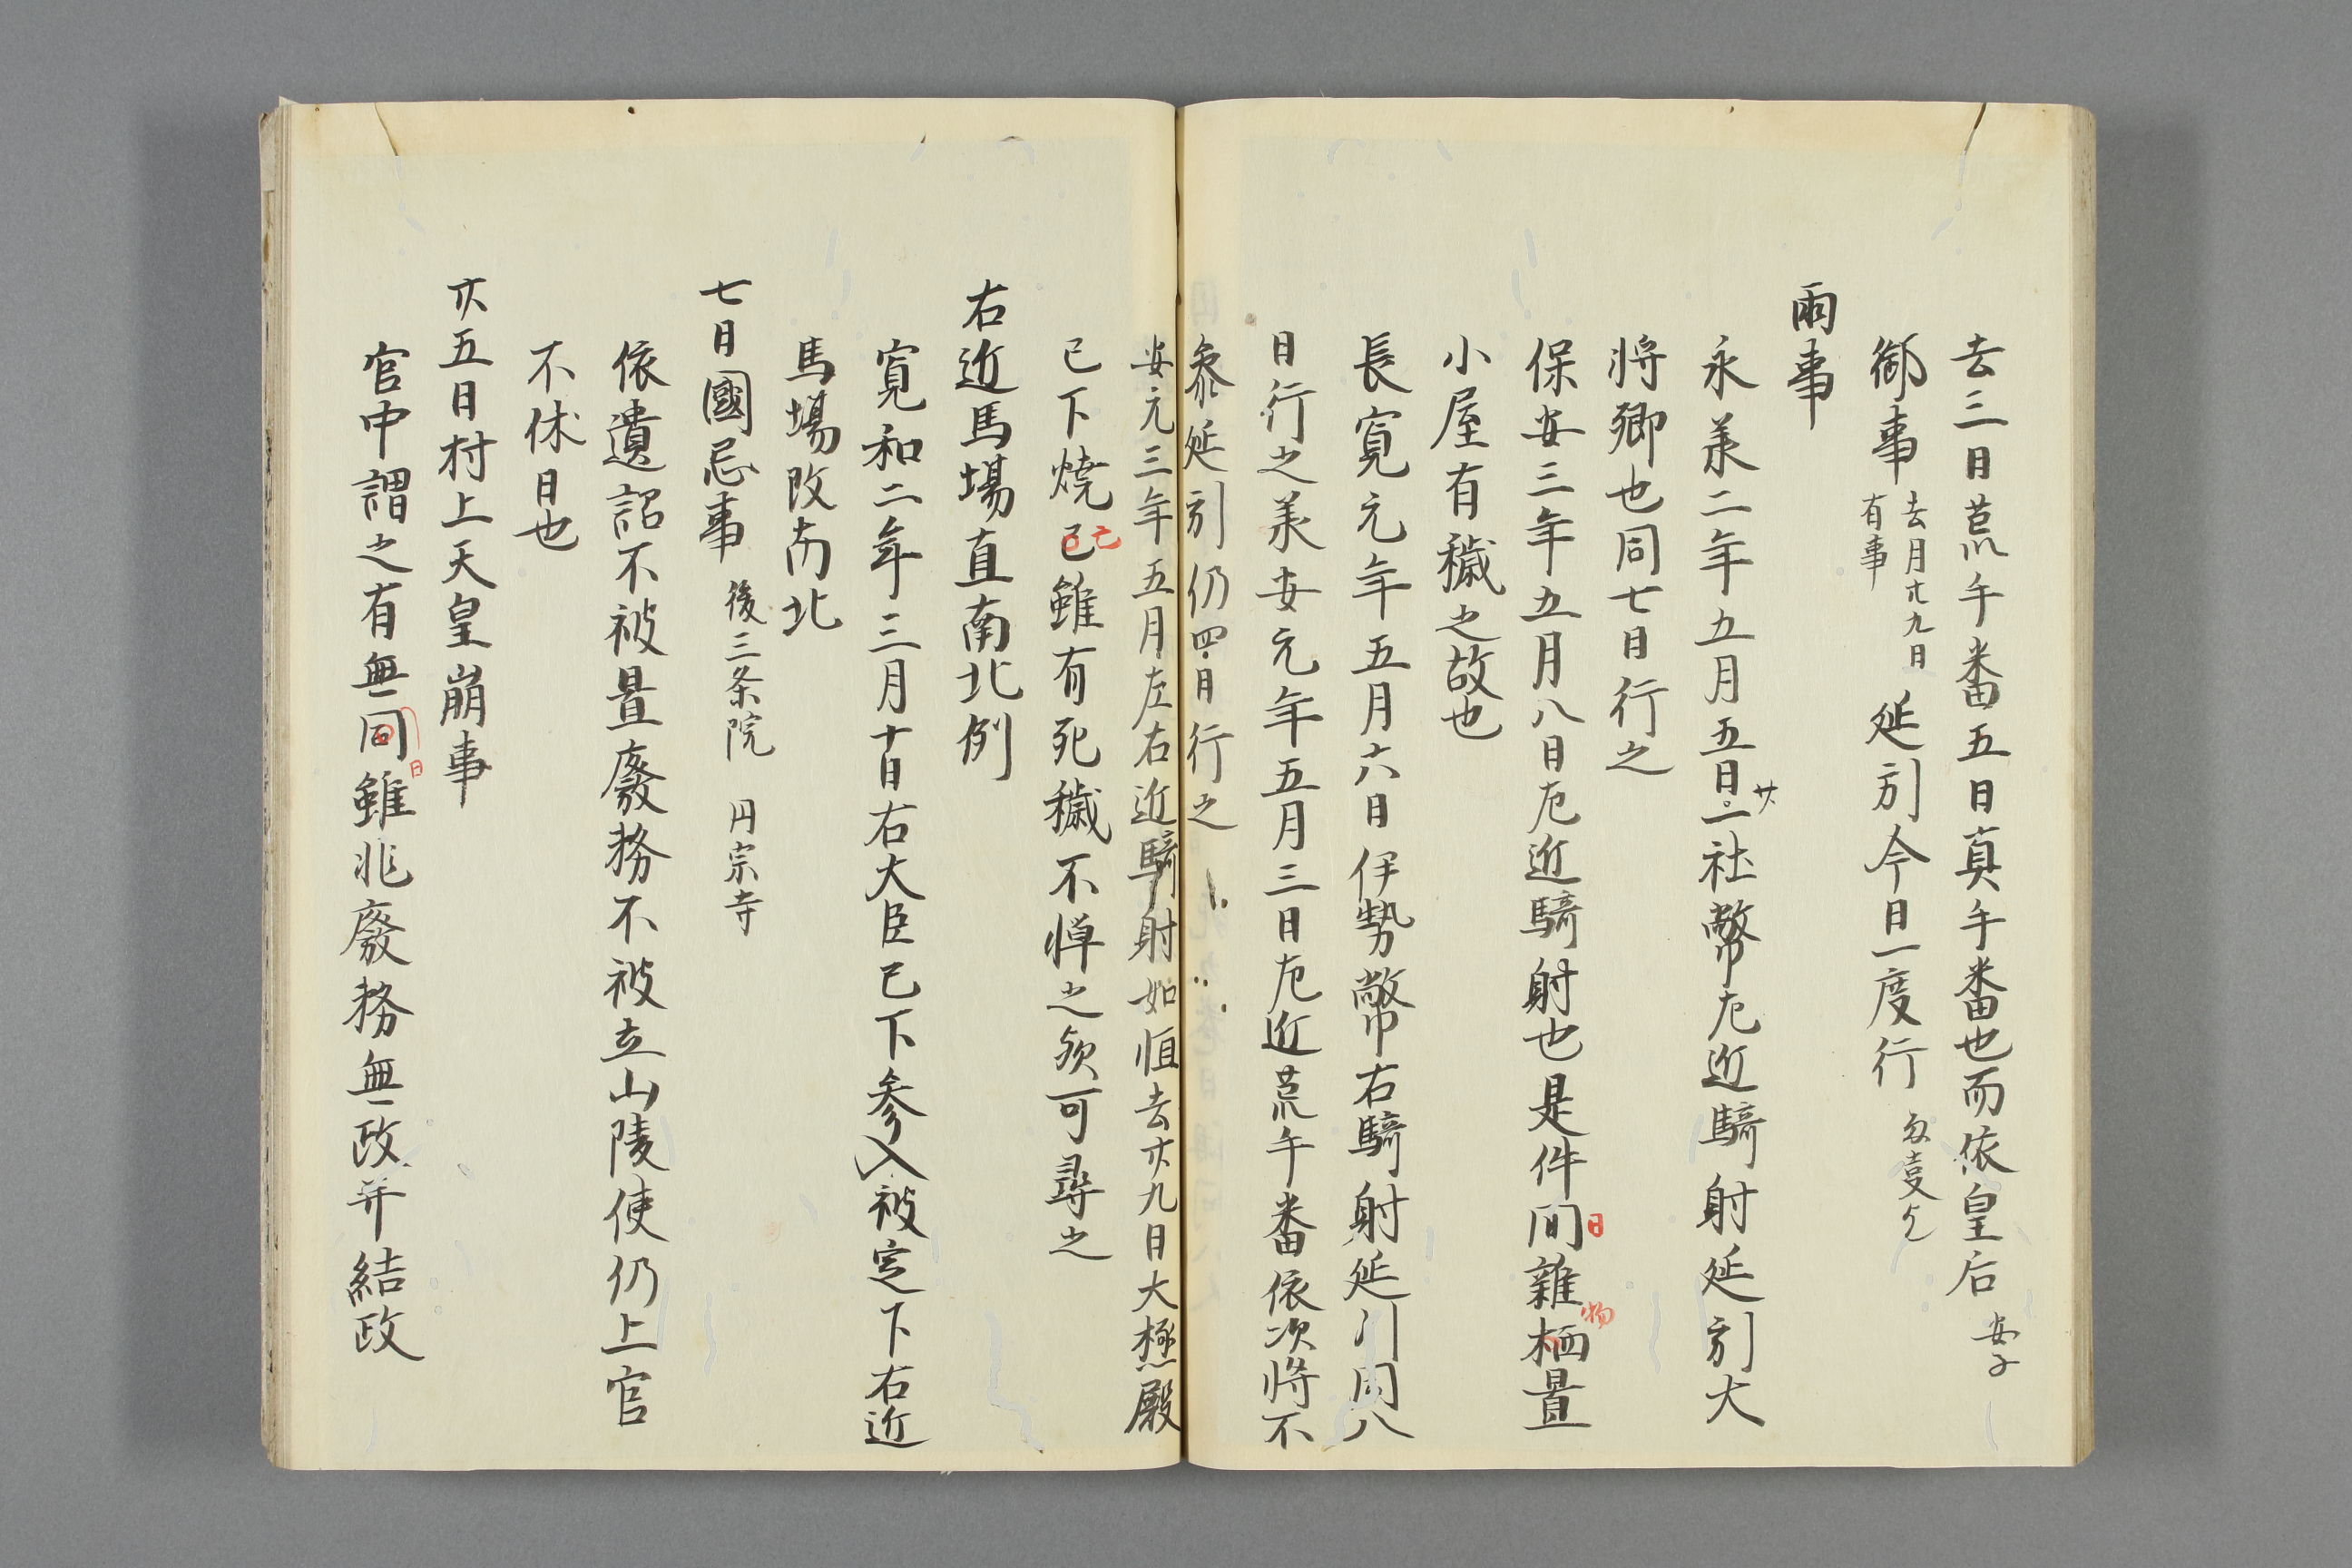 去三日荒手番五日真手番也而依皇后 安子
御事 去月廿九日有事 延引今日一度行
雨事
永承二年五月五日廿一社幣左近騎射延引大
将卿也同七日行之
保安三年五月八日左近騎射也是件間日雑栖物置
小屋有穢之故也
長寛元年五月六日伊勢幣右騎射延引同八
日行之承安元年五月三日左近荒手番依次将不
参延引仍四日行之
安元三年五月左右近騎射如恒去廿九日大極殿
已下焼已亡雖有死穢不憚之欤可尋之
右近馬場直南北例
寛和二年三月十日右大臣已下参入被定下右近
馬場改南北
七日國忌事 後三条院 円宗寺
依遺詔不被置廢務不被立山陵使仍上官
不休日也
廿五日村上天皇崩事
官中謂之有無同日雖非廢務無政并結政